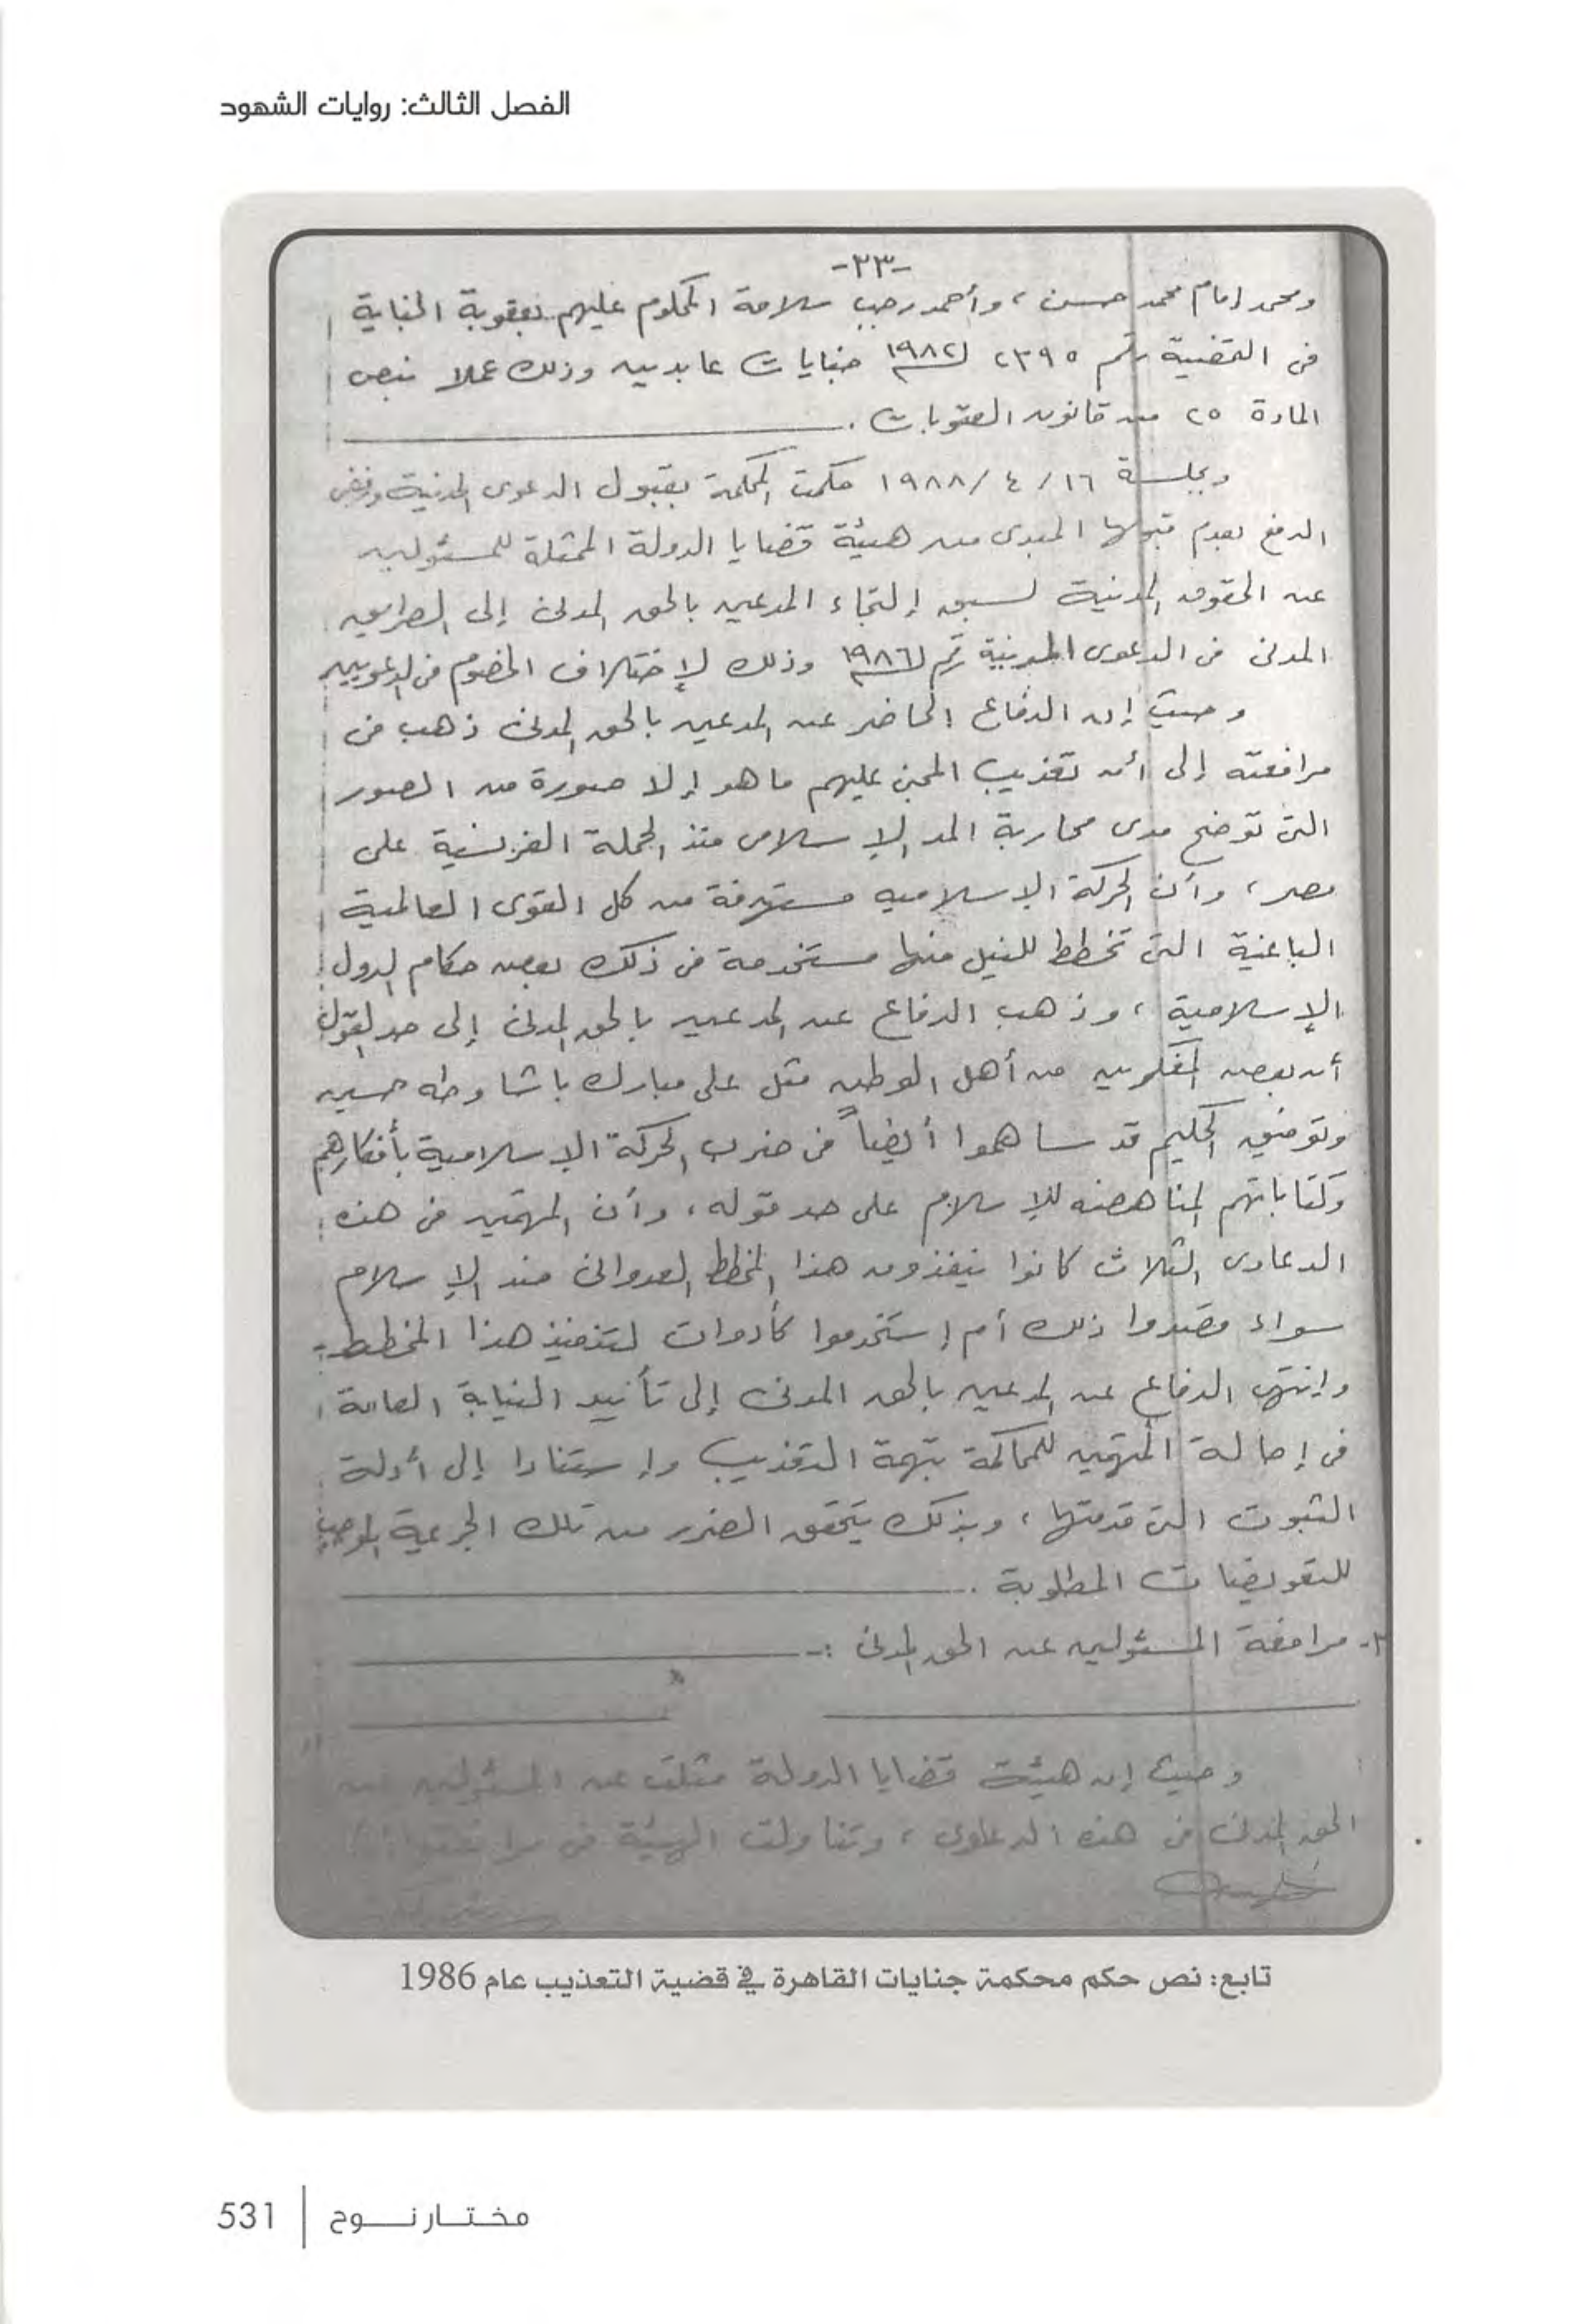 الفصل الثالث: روايات الشهود
-٣٣-
ومحمد إمام محمد حسن ، وأحمد رجب سلامة المحكوم عليهم بعقوبة الجناية
فى القضية رقم ٢٣٩٥ لسنة ١٩٨٢ جنايات عابدين وذلك عملا بنص
المادة ٢٥ من قانون العقوبات .
وبجلسة ١٦ / ٤ / ١٩٨٨ حكمت المحكمة بقبول الدعوى المدنية ورفض
الدفع بعدم قبولها المبدى من هيئة قضايا الدولة الممثلة للمسئولين
عن الحقوق المدنية لسبق إلتجاء المدعين بالحق المدنى إلى الطريق
المدنى فى الدعوى المدنية رقم لسنة ١٩٨٦ وذلك لإختلاف الخصوم فى الدعويين
وحيث إن الدفاع الحاضر عن المدعين بالحق المدنى ذهب فى
مرافعته إلى أن تعذيب المجنى عليهم ما هو إلا صورة من الصور
التى توضح مدى محاربة المد الإسلامى منذ الحملة الفرنسية على
مصر ، وأن الحركة الإسلاميه مستهدفة من كل القوى العالمية
الباغية التى تخطط للنيل منها مستخدمة فى ذلك بعض حكام الدول
الإسلامية ، وذهب الدفاع عن المدعين بالحق المدنى إلى حد القول
أن بعض المفكرين من أهل الوطن مثل على مبارك باشا وطه حسين
وتوفيق الحكيم قد ساهموا أيضاً فى ضرب الحركة الإسلامية بأفكارهم
وكتاباتهم المناهضه للإسلام على حد قوله ، وأن المتهمين فى هذه
الدعاوى الثلاث كانوا ينفذون هذا المخطط العدوانى ضد الإسلام
سواء قصدوا ذلك أم إستخدموا كأدوات لتنفيذ هذا المخطط
وإنتهى الدفاع عن المدعين بالحق المدنى إلى تأييد النيابة العامة
فى إحالة المتهمين للمحاكمة بتهمة التعذيب وإستنادا إلى أدلة
الثبوت التى قدمتها ، وبذلك يتحقق الضرر من تلك الجريمة الموجب
للتعويضات المطلوبة .
مرافعة المسئولين عن الحق المدنى :-
وحيث إن هيئة قضايا الدولة مثلت عن المسئولين عن
الحق المدنى فى هذه الدعاوى ، وتناولت الهيئة فى
تابع: نص حكم محكمة جنايات القاهرة في قضية التعذيب عام 1986
مختار نوح | 531